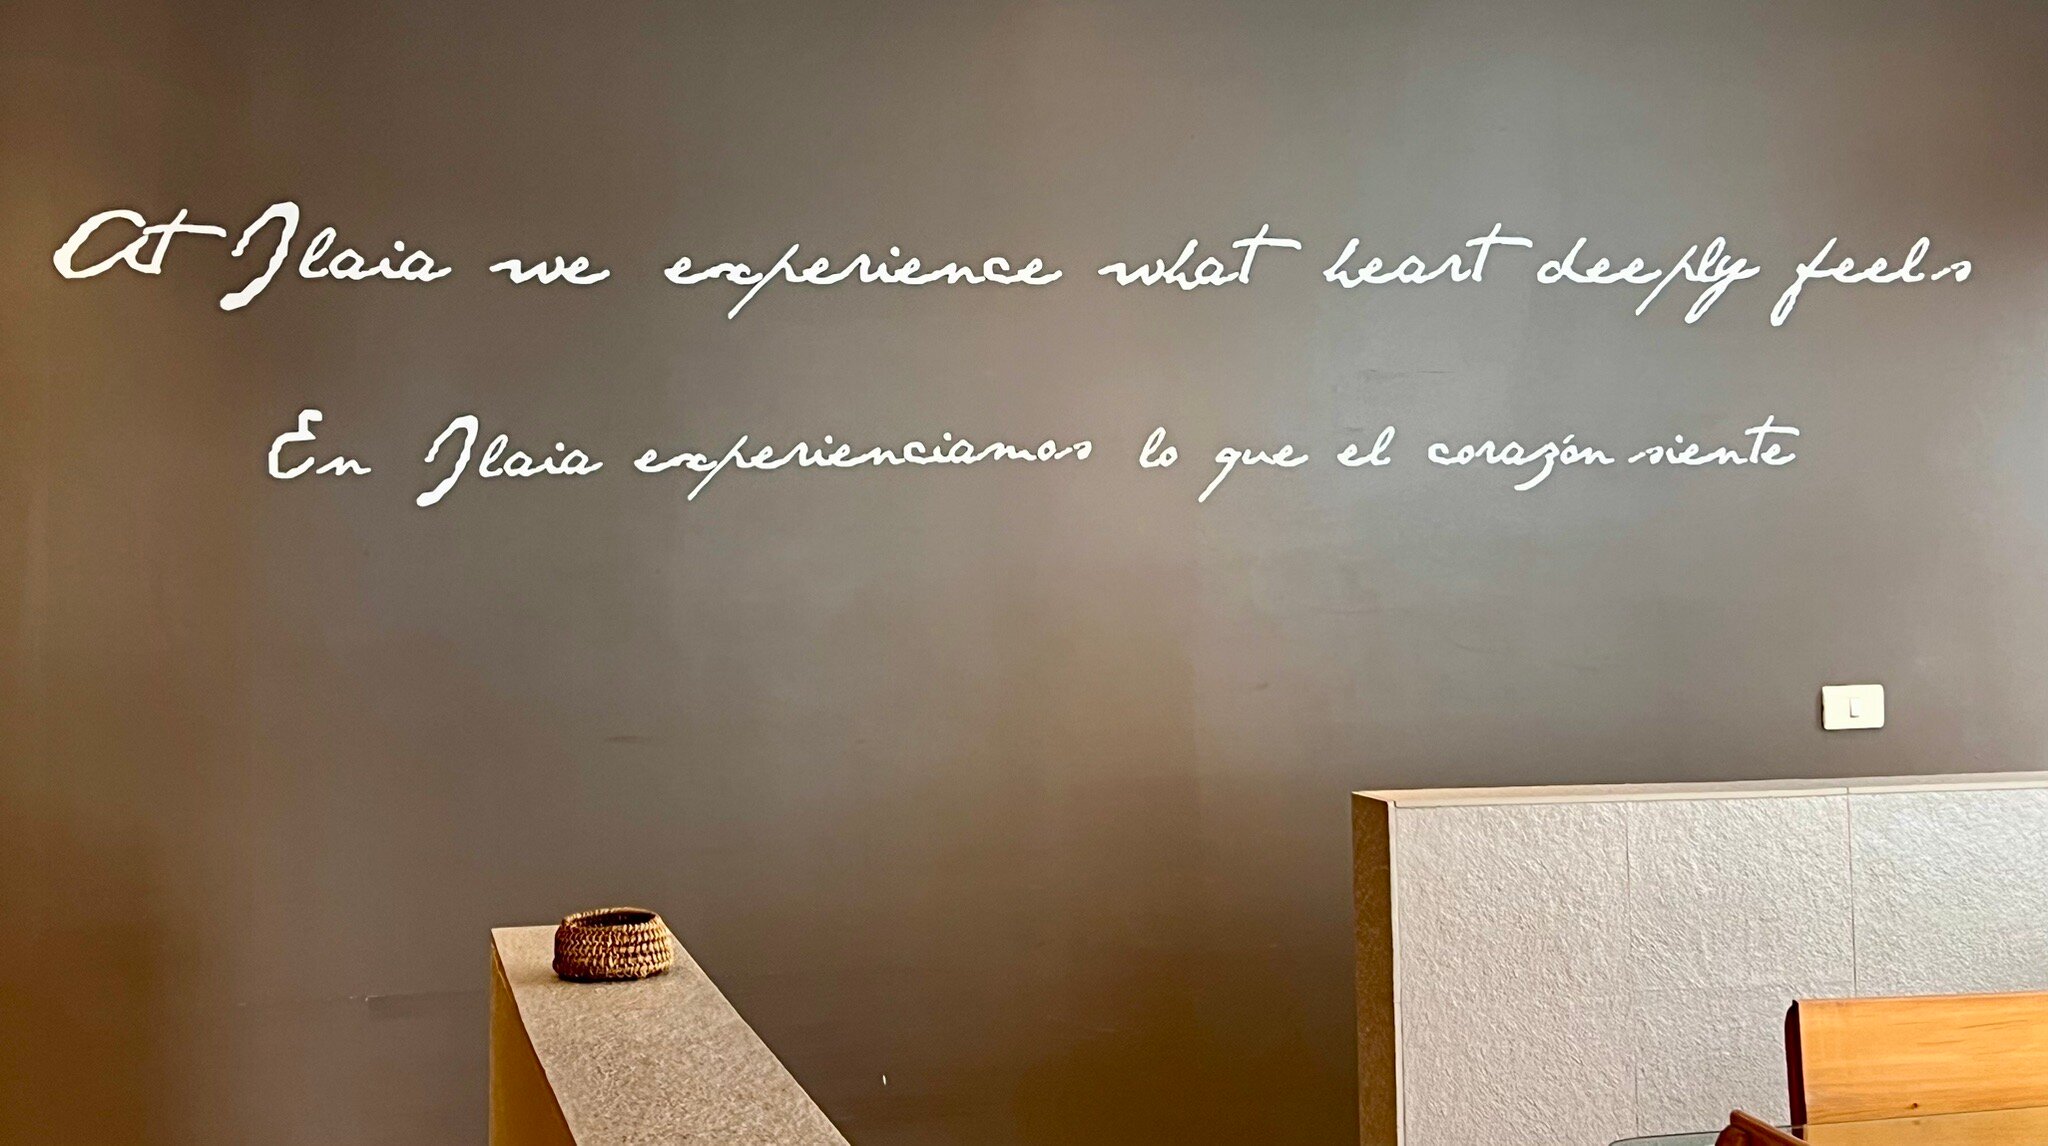 At Ilaia we experience what heart deeply feels
En Ilaia experienciamos lo que el corazón siente